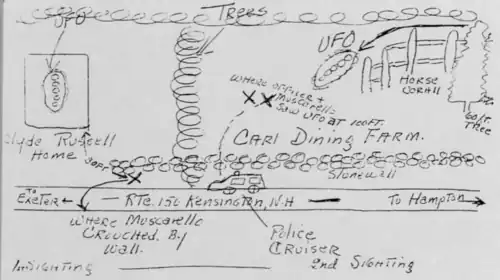 UFO
TREES
UFO
HORSE
CORALL
60 FT.
TREE
WHERE OFFICER +
MUSCARELLO
SAW UFO AT 100FT.
CARL DINING FARM.
Clyde Russell
Home
30FT
Stonewall
TO
EXETER ← — RTE. 150 KENSINGTON, N.H — TO HAMPTON →
WHERE MUSCARELLO
CROUCHED. BY
WALL.
POLICE
CRUISER
1st SIGHTING
2nd SIGHTING